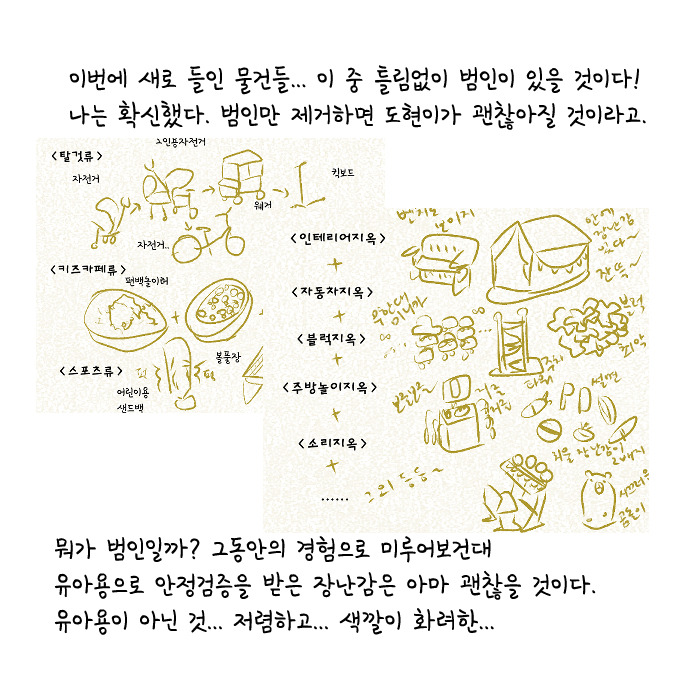 이번에 새로 들인 물건들... 이 중 틀림없이 범인이 있을 것이다!
나는 확신했다. 범인만 제거하면 도현이가 괜찮아질 것이라고.
<탈것류>
2인용자전거
자전거
웨거
킥보드
자전거..
<키즈카페류>
편백놀이터
볼풀장
<스포츠류>
퍽
퍽
어린이용
샌드백
벤치로
보이지
<인테리어지옥>
안에
장난감
있다~
잔뜩~
<자동차지옥>
무한대
미니카
<블럭지옥>
주차
타워
블럭
최악
<주방놀이지옥>
썰면
<소리지옥>
장난감이
2배지
시끄러운
곰돌이
그외 등등~
......
뭐가 범인일까? 그동안의 경험으로 미루어보건대
유아용으로 안정검증을 받은 장난감은 아마 괜찮을 것이다.
유아용이 아닌 것... 저렴하고... 색깔이 화려한...